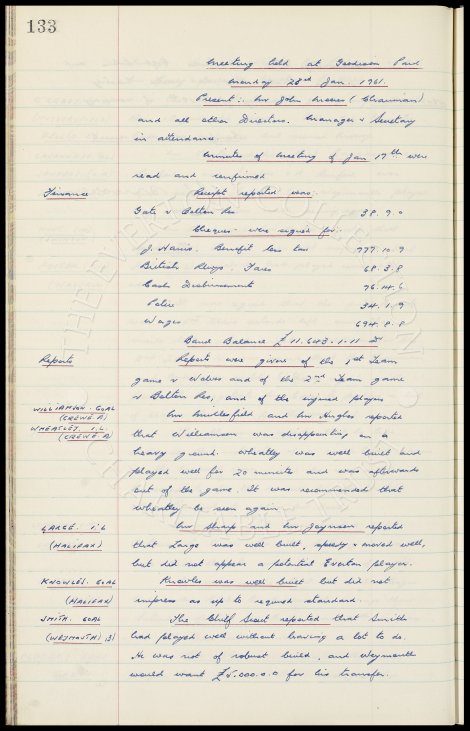 133
Meeting held at Goodison Park
Monday 23rd Jan. 1961.
Present:. Mr John Moores (Chairman)
and all other Directors. Manager & Secretary
in attendance.
Minutes of meeting of Jan 17th were
read and confirmed
Finance
Receipt reported was:
Gate v Bolton Res 38.9.0
Cheques were signed for:
J. Harris. Benefit less tax 777.10.9
British Rlwys. Fares 68.3.8
Cash Disbursements 76.14.6
Police 34.1.9
Wages 694.8.8
Bank Balance £11.643.1.11
Reports
Reports were given of the 1st Team
game v Wolves and of the 2nd Team game
v Bolton Res, and of the injured players
WILLIAMSON. GOAL
(CREWE A)
WHEATLEY. I.L
(CREWE A)
Mr Micklesfield and Mr Hughes reported
that Williamson was disappointing on a
heavy ground. Wheatley was well built and
played well for 20 minutes and was afterwards
out of the game. It was recommended that
Wheatley be seen again
LARGE. I.L
(HALIFAX)
Mr Sharp and Mr Joynson reported
that Large was well built, speedy & moved well,
but did not appear a potential Everton player.
KNOWLES. GOAL
(HALIFAX)
Knowles was well built but did not
impress as up to required standard.
SMITH. GOAL
(WEYMOUTH)
The Chief Scout reported that Smith
had played well without having a lot to do.
He was not of robust build, and Weymouth
would want £5.000.0.0 for his transfer.